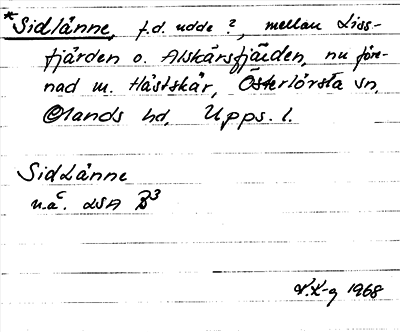 *Sidlånne, f.d. udde?, mellan Liss-
fjärden o. Alskärsfjärden, nu före-
nad m. Hästskär, Österlövsta sn,
Olands hd, Upps. l.
SidLånne
u.å. LSA B3
V.X-g 1968